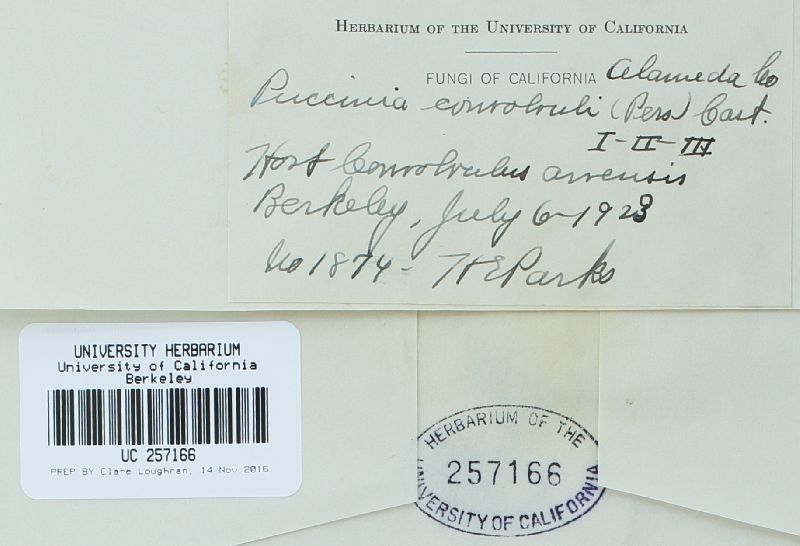 HERBARIUM OF THE UNIVERSITY OF CALIFORNIA
FUNGI OF CALIFORNIA Alameda Co
Puccinia convolvuli (Pers) Cast.
I-II-III
Host Convolvulus arvensis
Berkeley, July 6-1923
No 1874- HEParks
UNIVERSITY HERBARIUM
University of California
Berkeley
UC 257166
PREP BY Clare Loughran, 14 Nov 2016
HERBARIUM OF THE
257166
UNIVERSITY OF CALIFORNIA